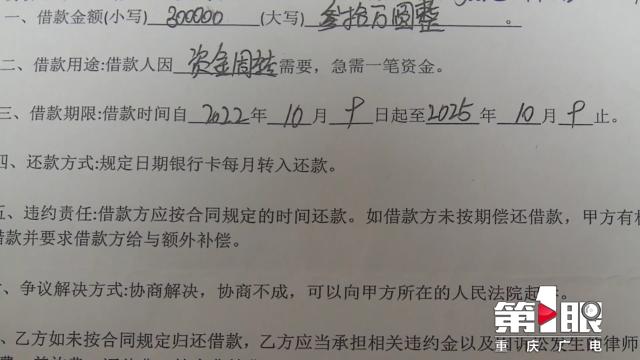 一、借款金额(小写) 300000 (大写) 叁拾万圆整 。
二、借款用途:借款人因 资金周转 需要，急需一笔资金。
三、借款期限:借款时间自 2022 年 10 月 9 日起至 2025 年 10 月 9 止。
四、还款方式:规定日期银行卡每月转入还款。
五、违约责任:借款方应按合同规定的时间还款。如借款方未按期偿还借款，甲方有
借款并要求借款方给与额外补偿。
、争议解决方式:协商解决，协商不成，可以向甲方所在的人民法院起
、乙方如未按合同规定归还借款，乙方应当承担相关违约金以及
第1眼
重庆广电